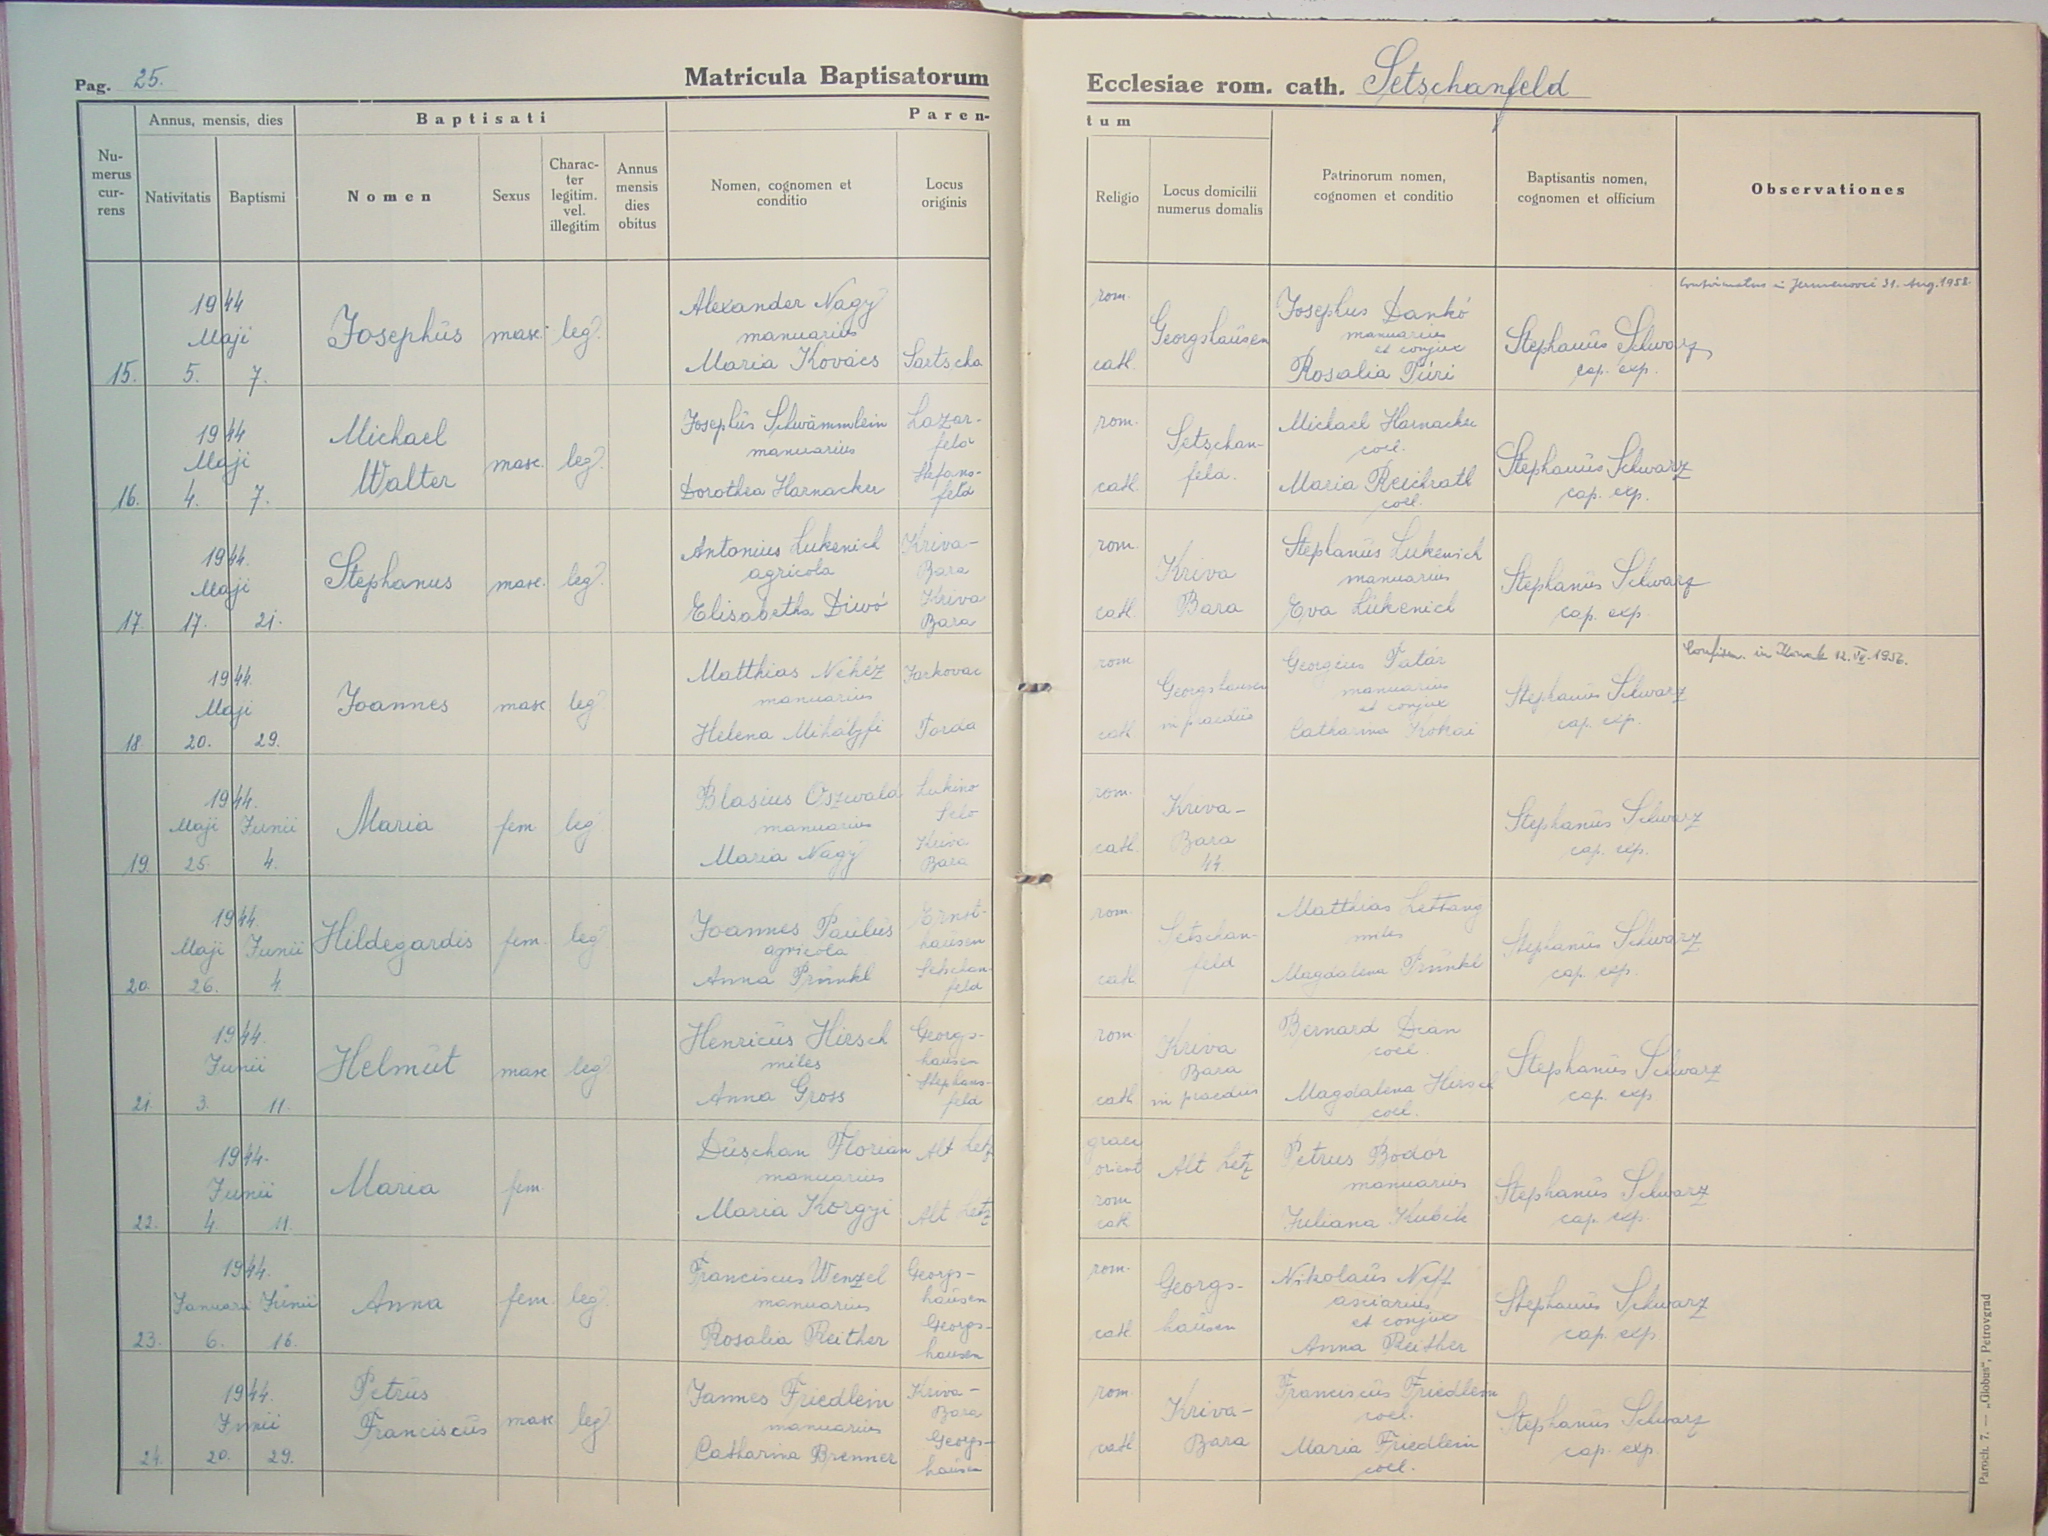 Pag. 25.
Matricula Baptisatorum
Ecclesiae rom. cath. Setschanfeld
Numerus currens
Annus, mensis, dies
Nativitatis
Baptismi
Baptisati
Nomen
Sexus
Charac-
ter
legitim.
vel.
illegitim
Annus
mensis
dies
obitus
Paren-
tum
Nomen, cognomen et
conditio
Locus
originis
Religio
Locus domicilii
numerus domalis
Patrinorum nomen,
cognomen et conditio
Baptisantis nomen,
cognomen et officium
Observationes
15. 1944 Maji 5. 7.
Josephus masc. leg.
Alexander Nagy
manuarius
Maria Kovács Sartscha
rom. cath.
Georgshausen
Josephus Dankó
manuarius
et conjux
Rosalia Túri
Stephanus Schwarz
cap. exp.
Confirmatus in Jermenovci 31. Aug. 1958.
16. 1944 Maji 4. 7.
Michael
Walter
masc. leg.
Josephus Schwämmlein
manuarius
Dorothea Harnacker
Lazar-
feld
Stefans-
feld
rom. cath.
Setschan-
feld.
Michael Harnacker
coel.
Maria Reichrath
coel.
Stephanus Schwarz
cap. exp.
17. 1944. Maji 17. 21.
Stephanus masc. leg.
Antonius Lukenich
agricola
Elisabetha Diwó
Kriva-
Bara
Kriva
Bara
rom. cath.
Kriva
Bara
Stephanus Lukenich
manuarius
Eva Lukenich
Stephanus Schwarz
cap. exp.
18. 1944. Maji 20. 29.
Joannes masc leg.
Matthias Nehéz
manuarius
Helena Mihályfi
Jarkovac
Torda
rom cath
Georgshausen
in praediis
Georgius Tatár
manuarius
et conjux
Catharina Kokai
Stephanus Schwarz
cap. exp.
Confirm. in 12. 1956.
19. 1944. Maji Junii 25. 4.
Maria fem leg.
Blasius Oszwald
manuarius
Maria Nagy
Lukino
Selo
Kriva
Bara
rom. cath.
Kriva-
Bara
44.
Stephanus Schwarz
cap. exp.
20. 1944. Maji Junii 26. 4.
Hildegardis fem. leg.
Joannes Paulus
agricola
Anna Prünkl
Ernst-
hausen
Setschan-
feld
rom. cath
Setschan-
feld
Matthias Lettang
miles
Magdalena Prünkl
Stephanus Schwarz
cap. exp.
21. 1944. Junii 3. 11.
Helmut masc leg.
Henricus Hirsch
miles
Anna Gross
Georgs-
hausen
Stephans-
feld
rom cath
Kriva
Bara
in praediis
Bernard Dean
coel.
Magdalena Hirsch
coel.
Stephanus Schwarz
cap. exp
22. 1944. Junii 4. 11.
Maria fem.
Duschan Florian
manuarius
Maria Korgyi
Alt Letz
Alt Letz
graec
orient
rom
cath
Alt Letz
Petrus Bodor
manuarius
Juliana Kubik
Stephanus Schwarz
cap. exp.
23. 1944. Januarii Junii 6. 16.
Anna fem. leg.
Franciscus Wenzel
manuarius
Rosalia Reither
Georgs-
hausen
Georgs-
hausen
rom. cath
Georgs-
hausen
Nikolaus Neff
asciarius
et conjux
Anna Reither
Stephanus Schwarz
cap. exp
24. 1944. Junii 20. 29.
Petrus
Franciscus
masc leg.
Jannes Friedlein
manuarius
Catharina Brenner
Kriva-
Bara
Georgs-
hausen
rom cath
Kriva-
Bara
Franciscus Friedlein
coel.
Maria Friedlein
coel.
Stephanus Schwarz
cap. exp.
Paroch. 7. — „Globus“, Petrovgrad